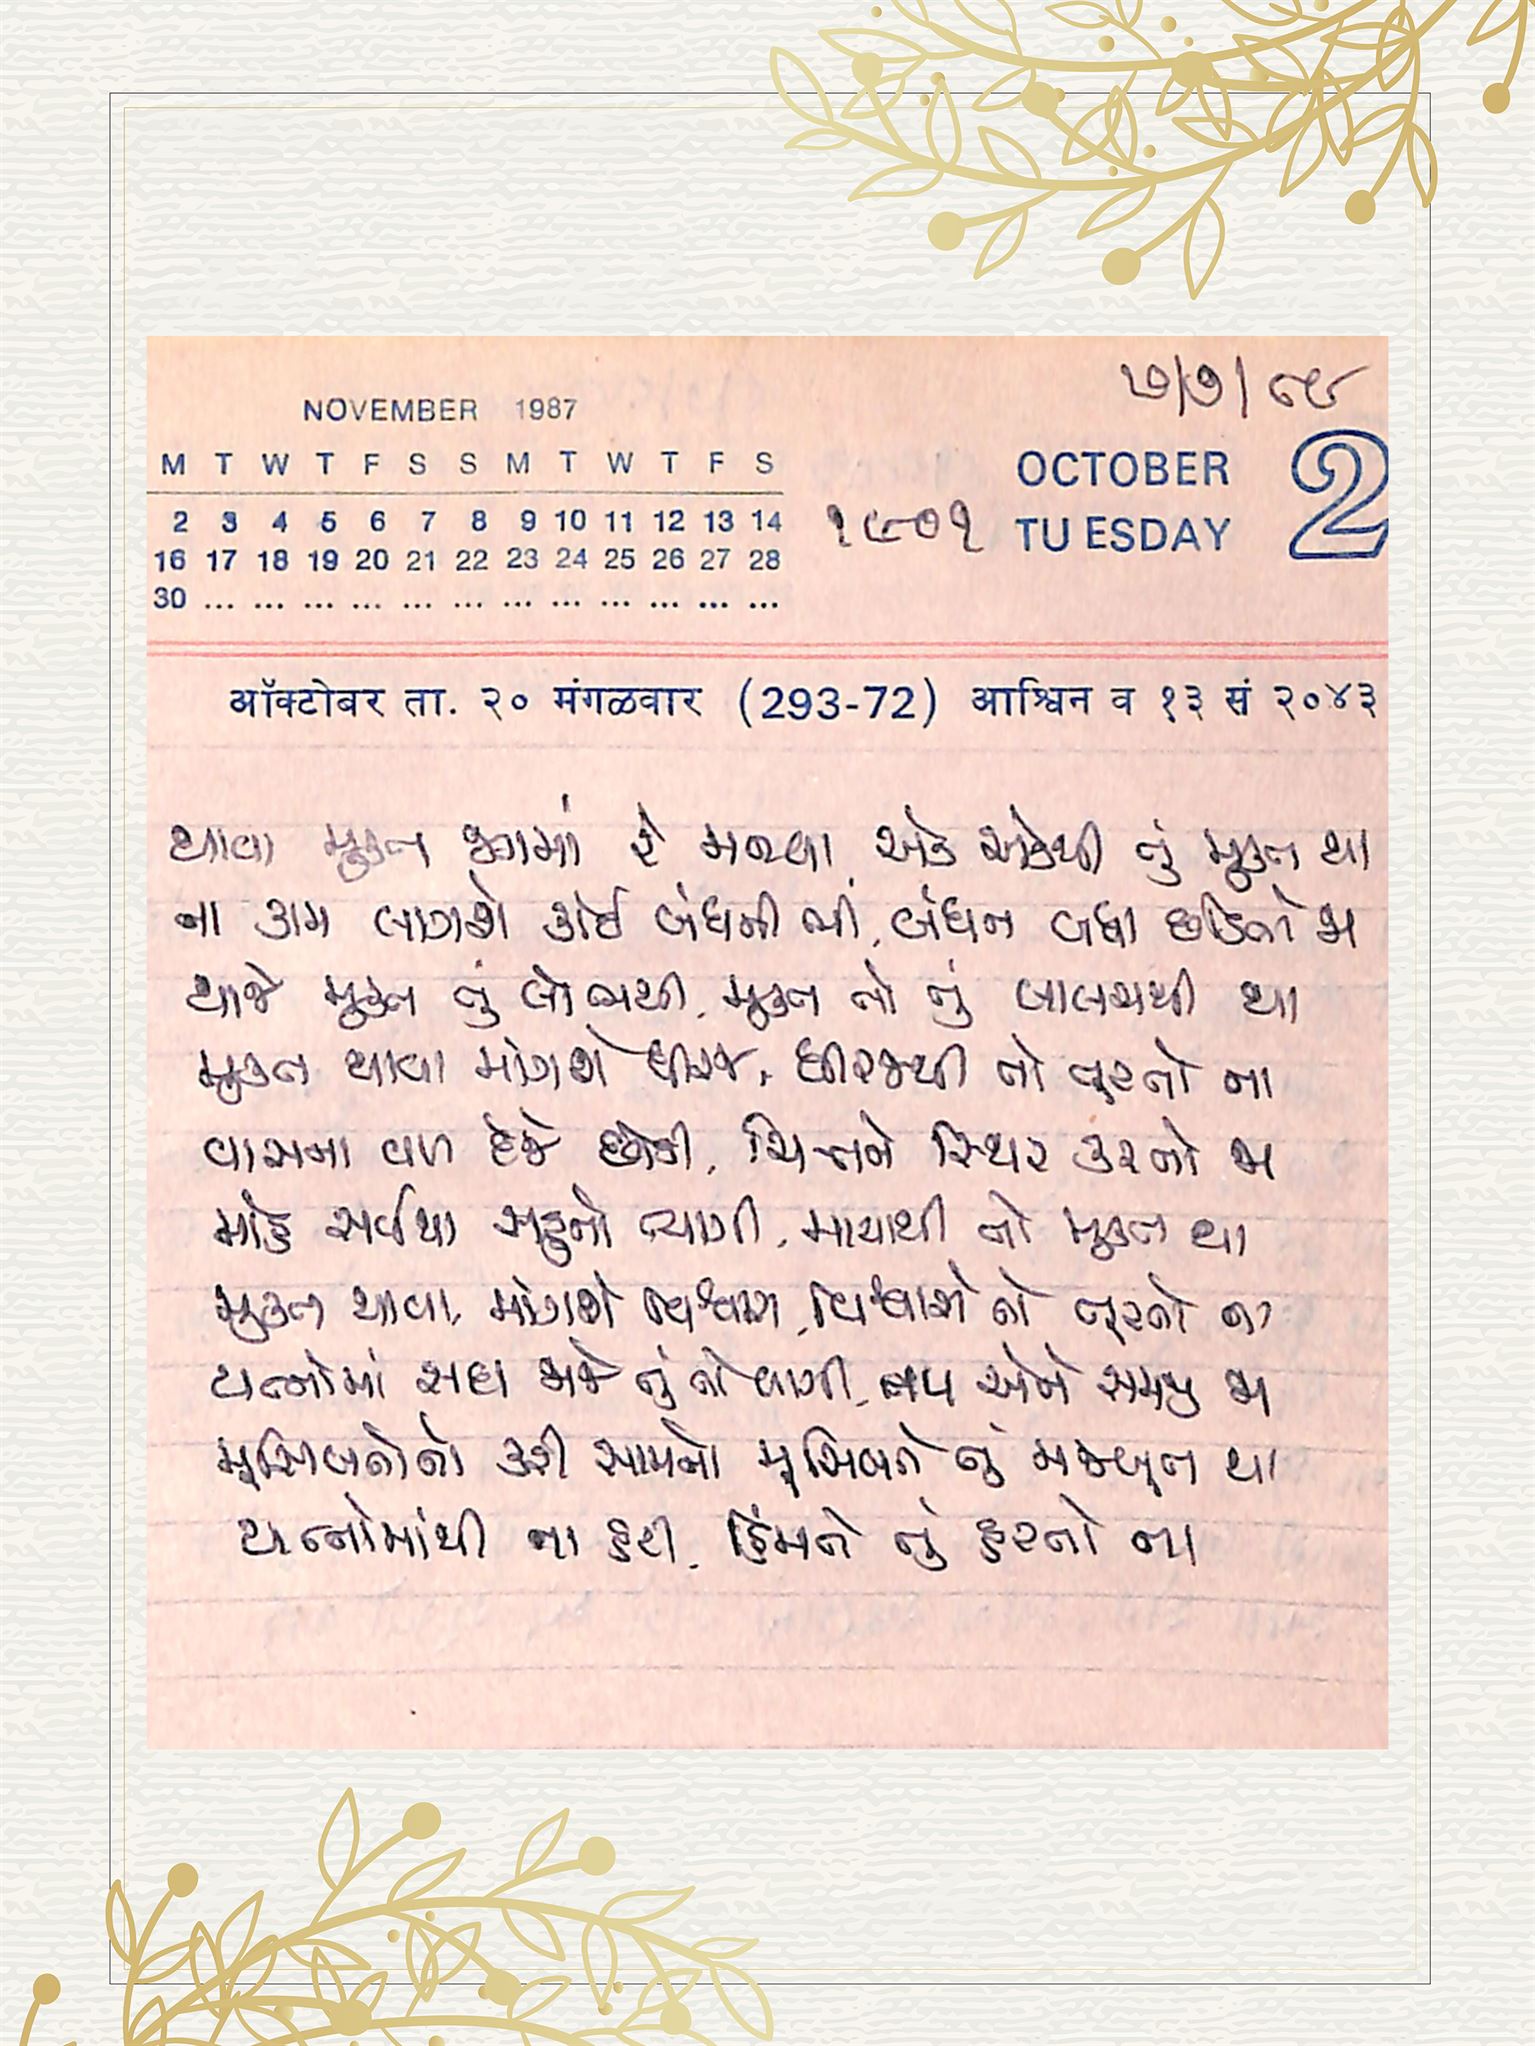 ૭/૭/૯૯
NOVEMBER 1987
M T W T F S S M T W T F S
2 3 4 5 6 7 8 9 10 11 12 13 14
16 17 18 19 20 21 22 23 24 25 26 27 28
30 ... ... ... ... ... ... ... ... ... ... ... ...
૧૯૦૧
OCTOBER 2
TUESDAY
ऑक्टोबर ता. २० मंगळवार (293-72) आश्विन व १३ सं २०४३
થાવા મુક્ત જગમાં રે મનવા, એક એકથી તું મુક્ત થા
ના કામ લાગશે કોઈ બંધની ત્યાં, બંધન બધા છોડતો જા
થાજે મુક્ત તું લોભથી, મુક્ત તો તું લાલચથી થા
મુક્ત થાવા માંગશે ધીરજ, ધીરજથી તો તૂટતો ના
વાસના વળ દેજે છોડી, ચિત્તને સ્થિર કરતો જા
મોહ સર્વથા સહુનો ત્યાગી, માયાથી તો મુક્ત થા
મુક્ત થાવા, માંગશે વિશ્વાસ, વિશ્વાસે તો તૂટતો ના
યત્નોમાં સદા જાજે તું તો લાગી, તપ એને સમજી જા
મુસિબતોનો કરી સામનો મુસિબતે તું મજબૂત થા
યત્નોમાંથી ના હટી, હિંમતે તું હટતો ના